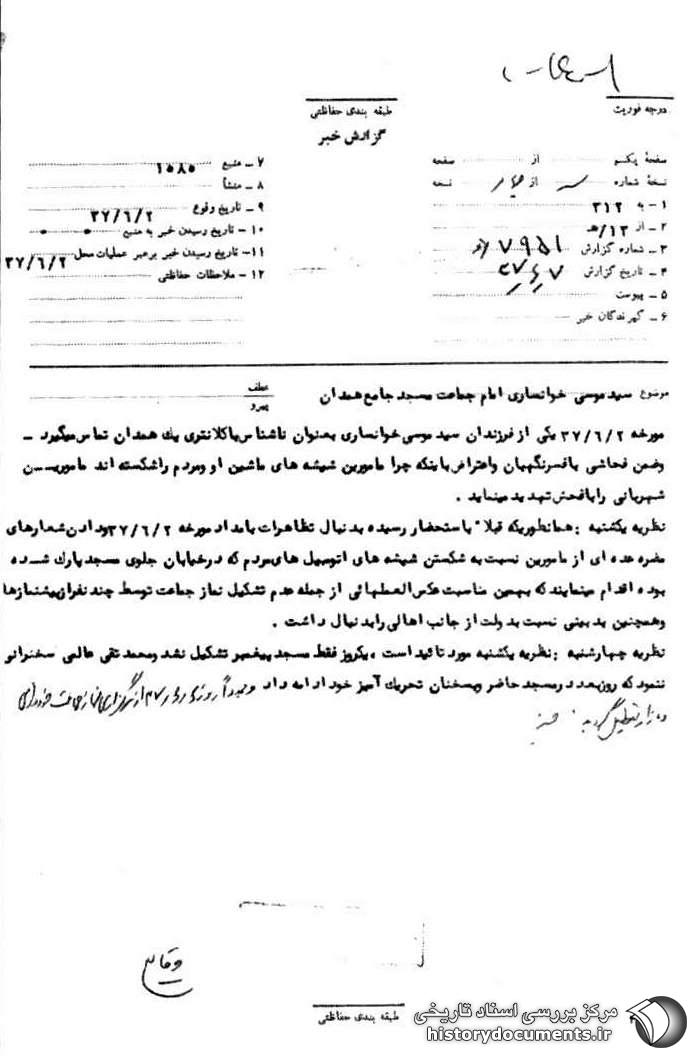 درجه فوریت
طبقه بندی حفاظتی
گزارش خبر
صفحهٔ یکم از صفحه
نسخهٔ شماره سه از چهار نسخه
۱ - به ۳۱۲
۲ - از ۱۳/هـ
۳ - شماره گزارش ۷۹۵۱
۴ - تاریخ گزارش ۳۷/۶/۷
۵ - پیوست
۶ - گیرندگان خبر
۷ - منبع ۱۰۸۵
۸ - منشأ
۹ - تاریخ وقوع ۳۷/۶/۲
۱۰ - تاریخ رسیدن خبر به منبع
۱۱ - تاریخ رسیدن خبر برهبر عملیات محل ۳۷/۶/۲
۱۲ - ملاحظات حفاظتی
موضوع سید موسی خوانساری امام جماعت مسجد جامع همدان
عطف
پیرو
مورخه ۳۷/۶/۲ یکی از فرزندان سید موسی خوانساری بعنوان ناشناس باکلانتری یک همدان تماس میگیرد -
وضمن فحاشی بافسرنگهبان واعتراض باینکه چرا مامورین شیشه های ماشین او ومردم راشکسته اند مامورین
شهربانی رابافحش تهدید مینماید .
نظریه یکشنبه : همانطوریکه قبلا" باستحضار رسیده بدنبال تظاهرات بامداد مورخه ۳۷/۶/۲ ودادن شعارهای
مضره عده ای از مامورین نسبت به شکستن شیشه های اتومبیل های مردم که درخیابان جلوی مسجد پارک شده
بوده اقدام مینمایند که بهمین مناسبت عکس العملهائی از جمله عدم تشکیل نماز جماعت توسط چند نفر از پیشنمازها
وهمچنین بدبینی نسبت بدولت از جانب اهالی رابدنبال داشت .
نظریه چهارشنبه : نظریه یکشنبه مورد تائید است ، یکروز فقط مسجد پیغمبر تشکیل نشد ومحمد تقی عالمی سخنرانی
ننمود که روزبعد درمسجد حاضر وبسخنان تحریک آمیز خود ادامه داد
وقایع
طبقه بندی حفاظتی
مرکز بررسی اسناد تاریخی
historydocuments.ir